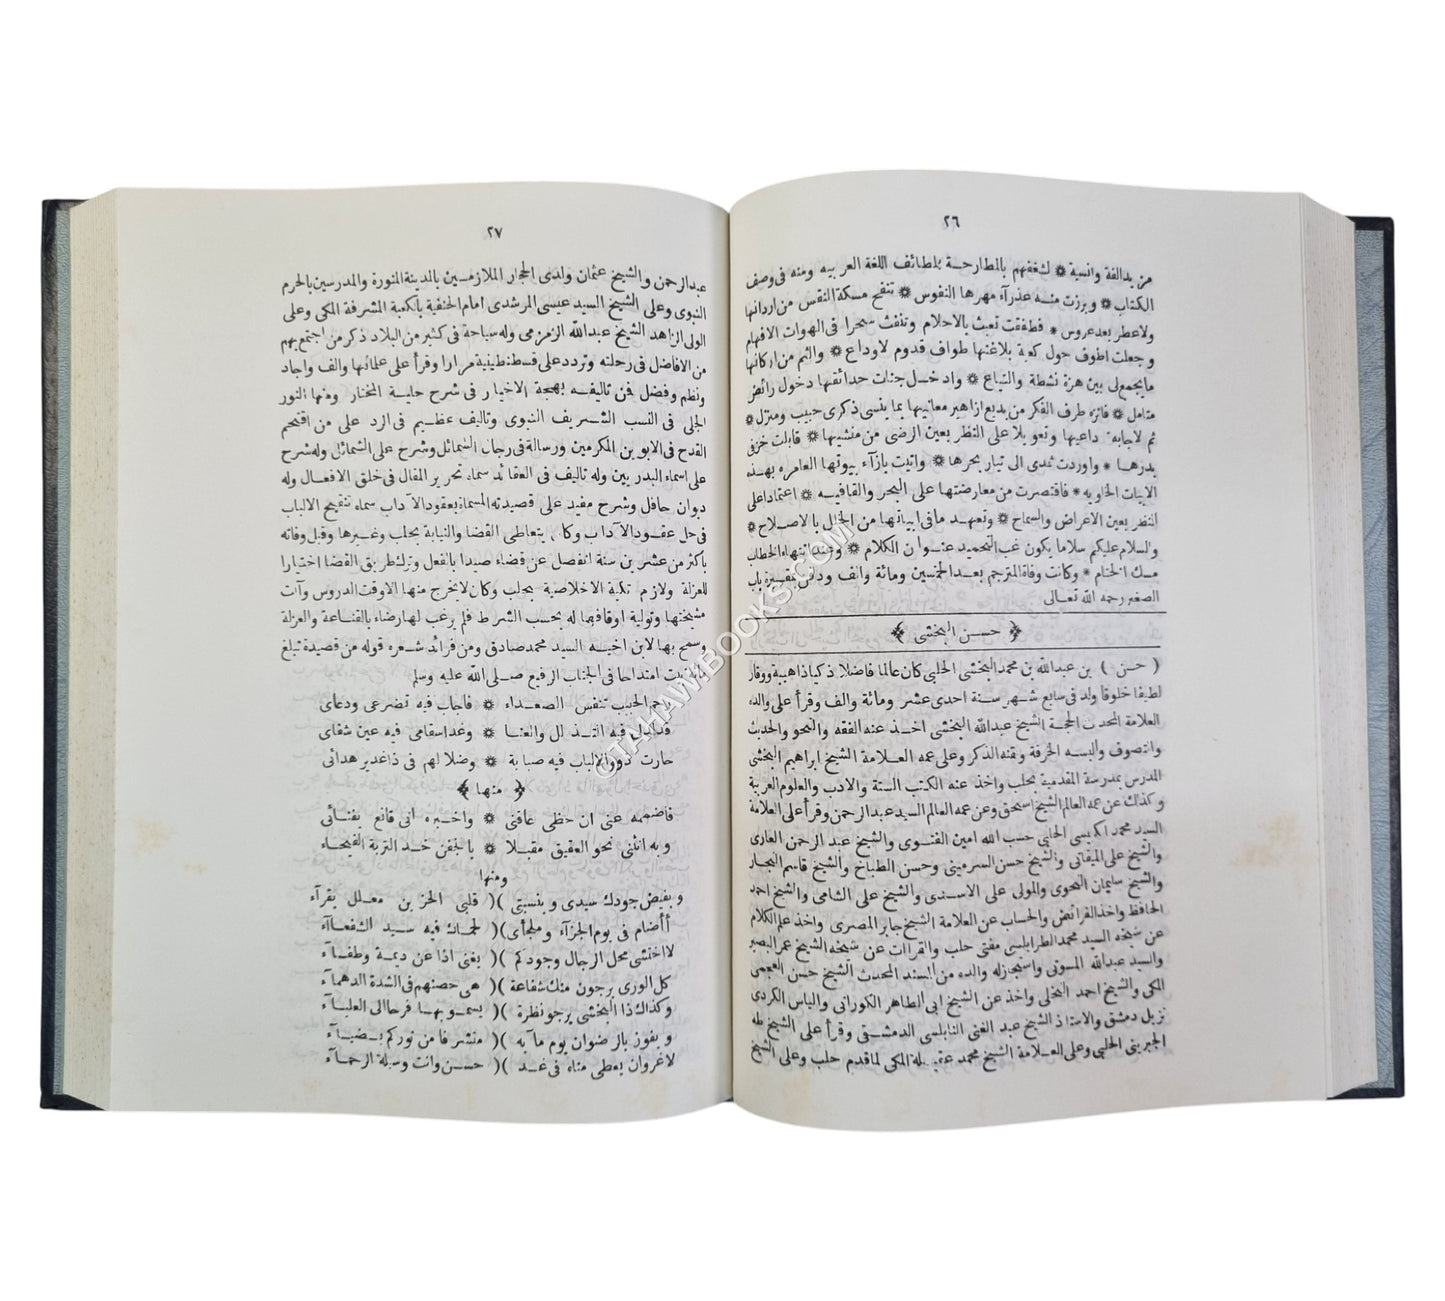 ٢٦
من يدالفة وانسية ❊ لشغفهم بالمطارحة بلطائف اللغة العربيه ومنه فى وصف
الكتاب ❊ وبرزت منه عذرآء مهرها النفوس ❊ تنفح مسكة النقس من اردانها
ولاعطر بعد عروس ❊ فطفقت تعبث بالاحلام وتنفث سحرا فى الهوات الافهام
وجعلت اطوف حول كعبة بلاغتها طواف قدوم لاوداع ❊ والثم من اركانها
مايجمعلى بين هزة نشطة والتياع ❊ وادخل جنات حدائقها دخول رائض
متامل ❊ فائزه طرف الفكر من بديع ازاهير معانيها بما ينسى ذكرى حبيب ومنزل ❊
ثم لاجابة داعيها وتعويلا على النظر بعين الرضى من منشيها ❊ قابلت خزفى
بدرها ❊ واوردت ثمدى الى تيار بحرها ❊ واتيت بازآء بيوتها العامره بهذه
الابيات الخاويه ❊ فاقتصرت من معارضتها على البحر والقافيه ❊ اعتمادا على
النظر بعين الاغراض والسماح ❊ وتعهد مافى ابياتها من الخلل بالاصلاح ❊
والسلام عليكم سلاما يكون غب التحميد عنوان الكلام ❊ وعند انتهاء الخطاب
مسك الختام ❊ وكانت وفاة المترجم بعد الخمسين ومائة والف ودفن بمقبرة باب
الصغير رحمه الله تعالى
﴿ حسن البخشى ﴾
( حسن ) بن عبدالله بن محمد البخشى الحلبى كان عالما فاضلا ذكيا ذاهيبة ووقار
لطيفا خلوقا ولد فى سابع شهر سنة احدى عشر ومائة والف وقرأ على والده
العلامة المحدث الحجة الشيخ عبدالله البخشى اخذ عنه الفقه والنحو والحديث
والتصوف والبسه الخرقة ولقنه الذكر وعلى عمه العلامة الشيخ ابراهيم البخشى
المدرس بمدرسة المقدمية بحلب واخذ عنه الكتب الستة والادب والعلوم العربية
وكذلك عن عمه العالم الشيخ اسحق وعن عمه العالم السيد عبدالرحمن وقرأ على العلامة
السيد محمد الكبيسى الحلبى حسب الله امين الفتوى والشيخ عبد الرحمن العارى
والشيخ على الميقاتى والشيخ حسن السرمينى وحسن الطباخ والشيخ قاسم النجار
والشيخ سليمان النحوى والمولى على الاسدى والشيخ على الشامى والشيخ احمد
الحافظ واخذ الفرائض والحساب عن العلامة الشيخ جابر المصرى واخذ علم الكلام
عن شيخه السيد محمد الطرابلسى مفتى حلب والقرآات عن شيخه الشيخ عمر البصير
والسيد عبدالله المسوتى واستجزله والده من المسند المحدث الشيخ حسن العجمى
المكى والشيخ احمد النخلى واخذ عن الشيخ ابى الطاهر الكورانى والياس الكردى
نزيل دمشق والاستاذ الشيخ عبد الغنى النابلسى الدمشقى وقرأ على الشيخ طه
الجبرينى الحلبى وعلى العلامة الشيخ محمد عقيلة المكى لماقدم حلب وعلى الشيخ
٢٧
عبدالرحمن والشيخ عثمان ولدى الحجار الملازمين بالمدينة المنورة والمدرسين بالحرم
النبوى وعلى الشيخ السيد عيسى المرشدى امام الحنفية بالكعبة المشرفة المكى وعلى
الولى الزاهد الشيخ عبدالله الزمزمى وله سياحة فى كثير من البلاد ذكر من اجتمع بهم
من الافاضل فى رحلته وتردد على قسطنطينية مرارا وقرأ على علمائها والف واجاد
ونظم وفضل فمن تاليفه بهجة الاخيار فى شرح حلية المختار ومنها النور
الجلى فى النسب الشريف النبوى وتاليف عظيم فى الرد على من اقتحم
القدح فى الابوين المكرمين ورسالة فى رجال الشمائل وشرح على الشمائل وله شرح
على اسماء البدريين وله تاليف فى العقائد سماه تحرير المقال فى خلق الافعال وله
ديوان حافل وشرح مفيد على قصيدته المسماة بعقود الآداب سماه تنقيح الالباب
فى حل عقود الآداب وكان يتعاطى القضا والنيابة بحلب وغيرها وقبل وفاته
باكثر من عشرين سنة انفصل عن قضاء صيدا بالفعل وترك طريق القضا اختيارا
للعزلة ولازم تكية الاخلاصية بحلب وكان لايخرج منها الا وقت الدروس وآلت
مشيختها وتولية اوقافها له بحسب الشرط فلم يرغب لها رضاء بالقناعة والعزلة
وسمح بها لابن اخيه السيد محمد صادق ومن فرائد شعره قوله من قصيدة تبلغ
امتداحا فى الجناب الرفيع صلى الله عليه وسلم
الحبيب تنفس الصعداء ❊ فاجاب فيه تضرعى ودعائى
فيه التذلل والعنا ❊ وغدا سقامى فيه عين شفائى
حارت ذوو الالباب فيه صبابة ❊ وضلالهم فى ذا غدير هدائى
﴿ منها ﴾
فاضمه عنى ان حظى عاقنى ❊ واخبره انى قانع بفنائى
وبه انثنى نحو العقيق مقبلا ❊ بالجفن خد التربة الفيحاء
ومنها
وبفيض جودك سيدى وبنسبتى )( قلبى الحزين معلل بقرآء
أأضام فى يوم الجزآء وملجأى )( لحماك فيه سيد الشفعاآء
لا اختشى محل الرجال وجودكم )( يغنى اذا عن ديمة وطفآء
كل الورى يرجون منك شفاعة )( هى حصنهم فى الشدة الدهمآء
وكذاك ذا البخشى يرجو نظرة )( يسمو بها فرحا الى العليآء
ويفوز بالرضوان يوم مآبه )( متشرفا من نوركم بضيآء
لاغروان يعطى مناه فى غد )( حسن وانت وسيلة الرحمآء
©TAHAWIBOOKS.COM